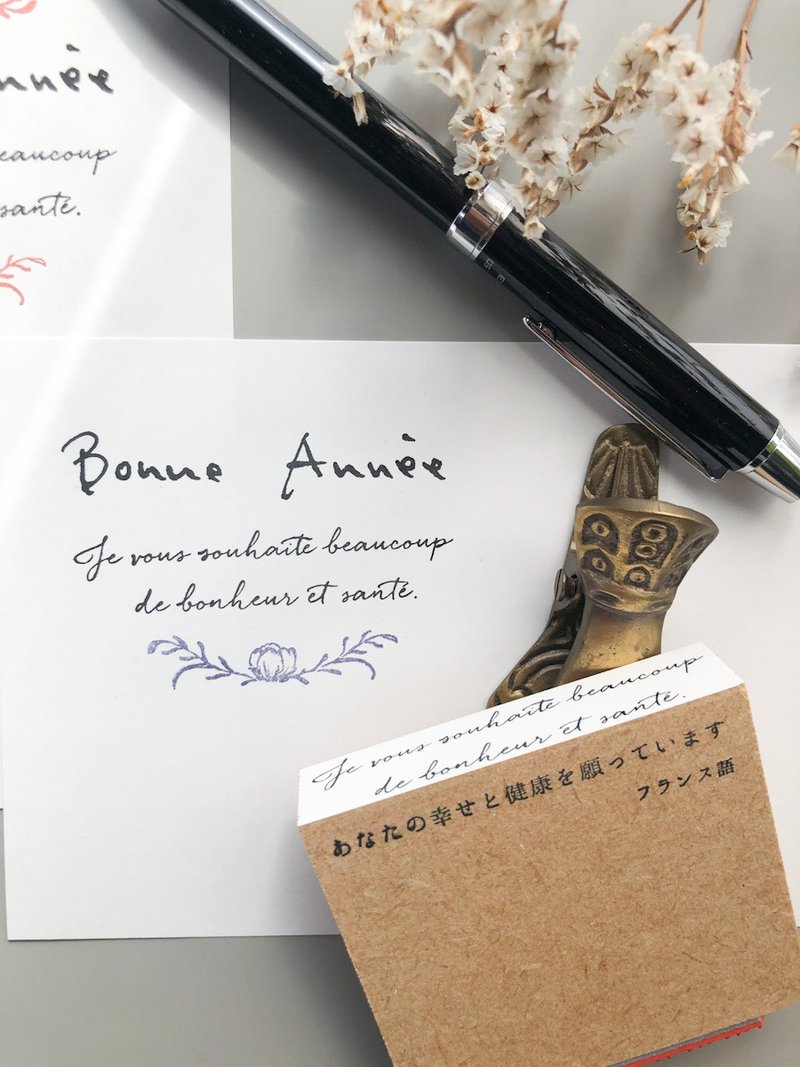 nnèe
eaucoup
santé.
Bonne Annèe
Je vous souhaite beaucoup
de bonheur et santé.
Je vous souhaite beaucoup
de bonheur et santé.
あなたの幸せと健康を願っています
フランス語